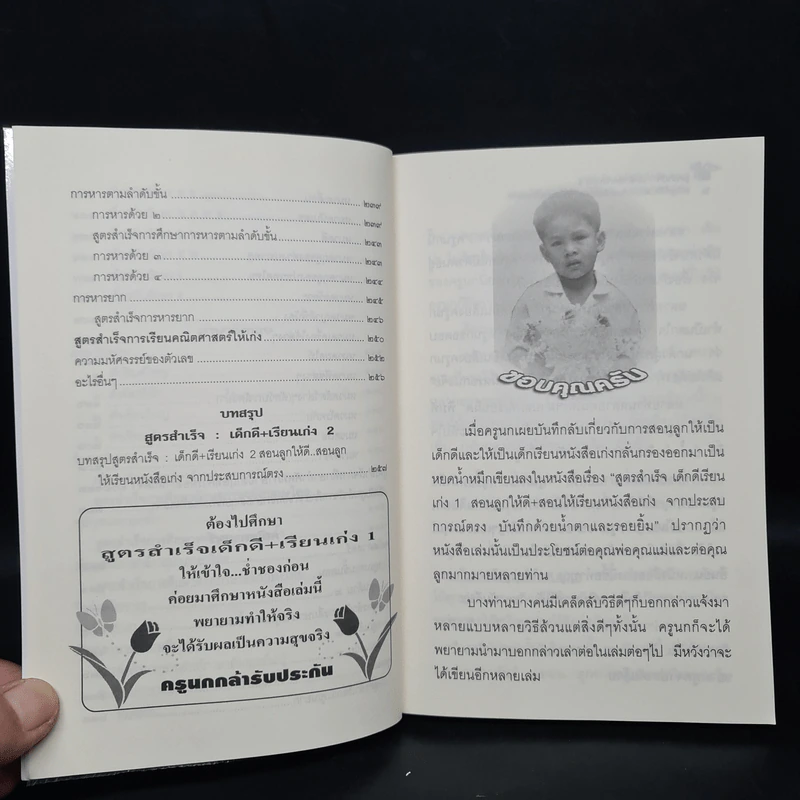 การหารตามลำดับขั้น ๒๓๙
การหารด้วย ๒ ๒๓๙
สูตรสำเร็จการศึกษาการหารตามลำดับขั้น ๒๔๓
การหารด้วย ๓ ๒๔๓
การหารด้วย ๔ ๒๔๔
การหารยาก ๒๔๕
สูตรสำเร็จการหารยาก ๒๔๖
สูตรสำเร็จการเรียนคณิตศาสตร์ให้เก่ง ๒๕๐
ความมหัศจรรย์ของตัวเลข ๒๕๒
อะไรอื่นๆ ๒๕๖
บทสรุป
สูตรสำเร็จ : เด็กดี+เรียนเก่ง 2
บทสรุปสูตรสำเร็จ : เด็กดี+เรียนเก่ง 2 สอนลูกให้ดี..สอนลูก
ให้เรียนหนังสือเก่ง จากประสบการณ์ตรง ๒๕๗
ต้องไปศึกษา
สูตรสำเร็จเด็กดี+เรียนเก่ง 1
ให้เข้าใจ...ช่ำชองก่อน
ค่อยมาศึกษาหนังสือเล่มนี้
พยายามทำให้จริง
จะได้รับผลเป็นความสุขจริง
ครูนกกล้ารับประกัน
ขอบคุณครับ
เมื่อครูนกเผยบันทึกลับเกี่ยวกับการสอนลูกให้เป็น
เด็กดีและให้เป็นเด็กเรียนหนังสือเก่งกลั่นกรองออกมาเป็น
หยดน้ำหมึกเขียนลงในหนังสือเรื่อง “สูตรสำเร็จ เด็กดีเรียน
เก่ง 1 สอนลูกให้ดี+สอนให้เรียนหนังสือเก่ง จากประสบ
การณ์ตรง บันทึกด้วยน้ำตาและรอยยิ้ม” ปรากฏว่า
หนังสือเล่มนั้นเป็นประโยชน์ต่อคุณพ่อคุณแม่และต่อคุณ
ลูกมากมายหลายท่าน
บางท่านบางคนมีเคล็ดลับวิธีดีๆก็บอกกล่าวแจ้งมา
หลายแบบหลายวิธีล้วนแต่สิ่งดีๆทั้งนั้น ครูนกก็จะได้
พยายามนำมาบอกกล่าวเล่าต่อในเล่มต่อๆไป มีหวังว่าจะ
ได้เขียนอีกหลายเล่ม